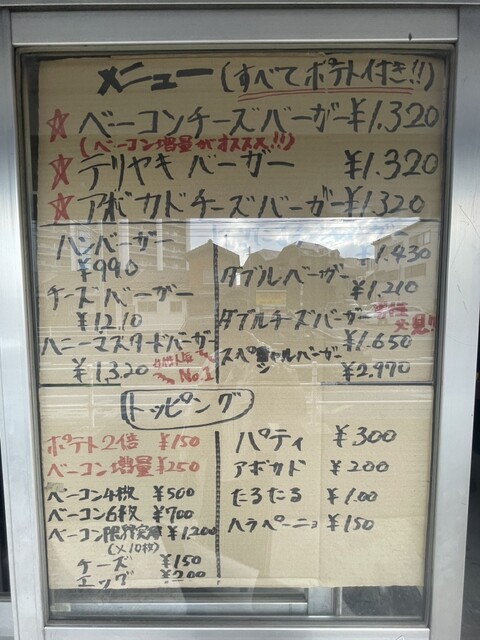 メニュー(すべてポテト付き!!)
☆ ベーコンチーズバーガー ¥1.320
(ベーコン増量がオススメ!!)
☆ テリヤキバーガー ¥1.320
☆ アボカドチーズバーガー ¥1.320
ハンバーガー
¥990
チーズバーガー
¥1.210
ハニーマスタードバーガー
¥1320
No.1
¥1.430
ダブルバーガー
¥1.210
ダブルチーズバーガー
¥1.650
スペシャルバーガー
¥2.970
トッピング
ポテト2倍 ¥150
ベーコン増量 ¥250
ベーコン4枚 ¥500
ベーコン6枚 ¥700
ベーコン限界突破 ¥1.200
(×10枚)
チーズ ¥150
エッグ ¥200
パティ ¥300
アボカド ¥200
たるたる ¥100
ハラペーニョ ¥150